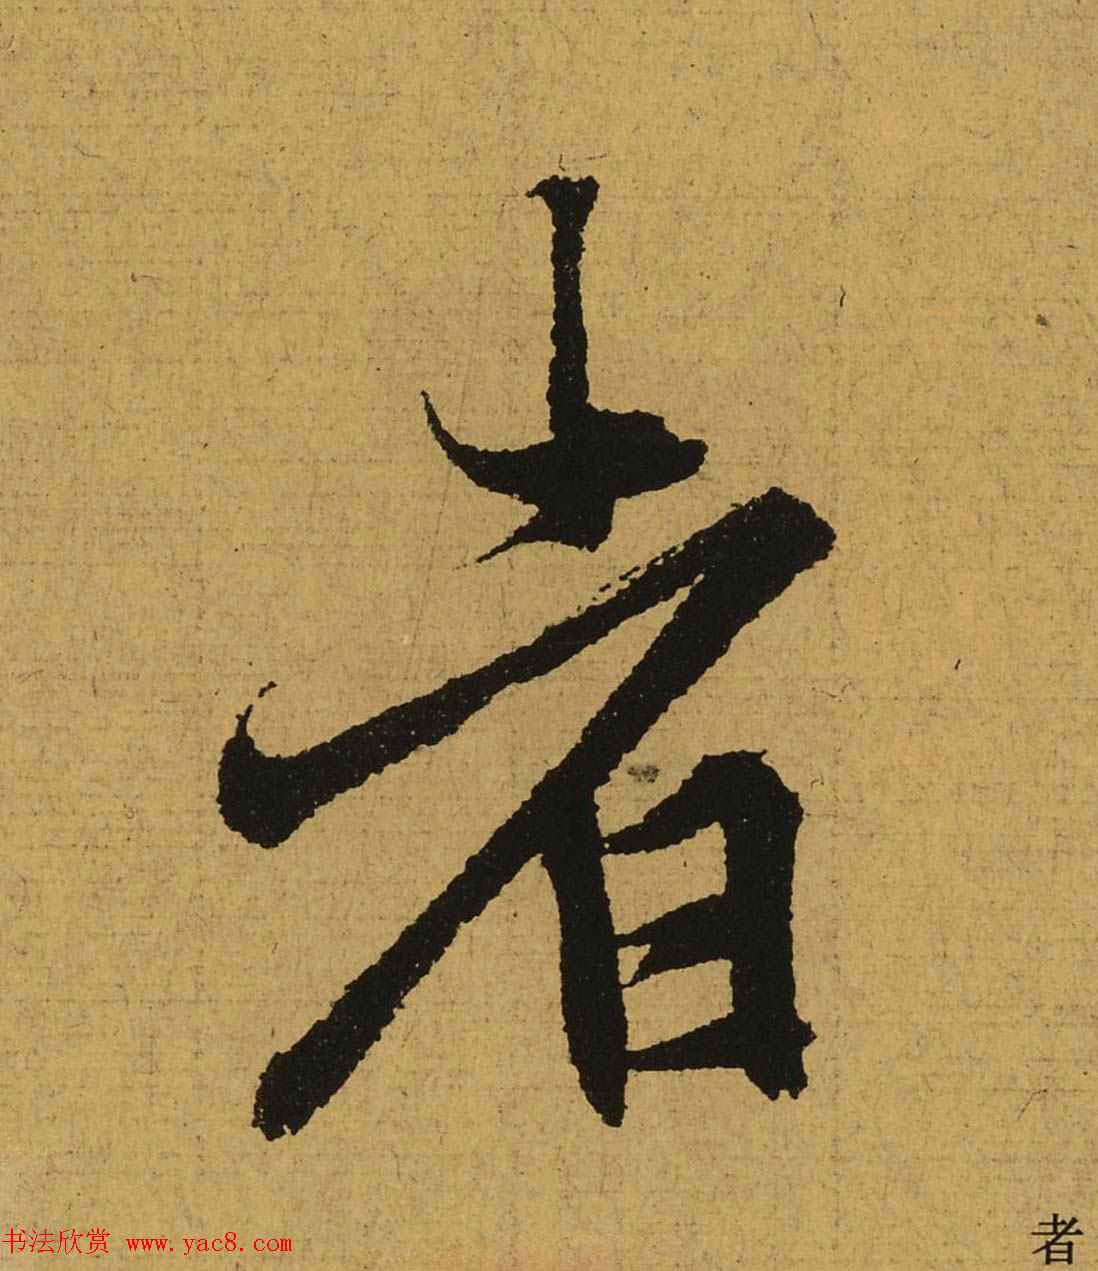 者
书法欣赏 www.yac8.com
者